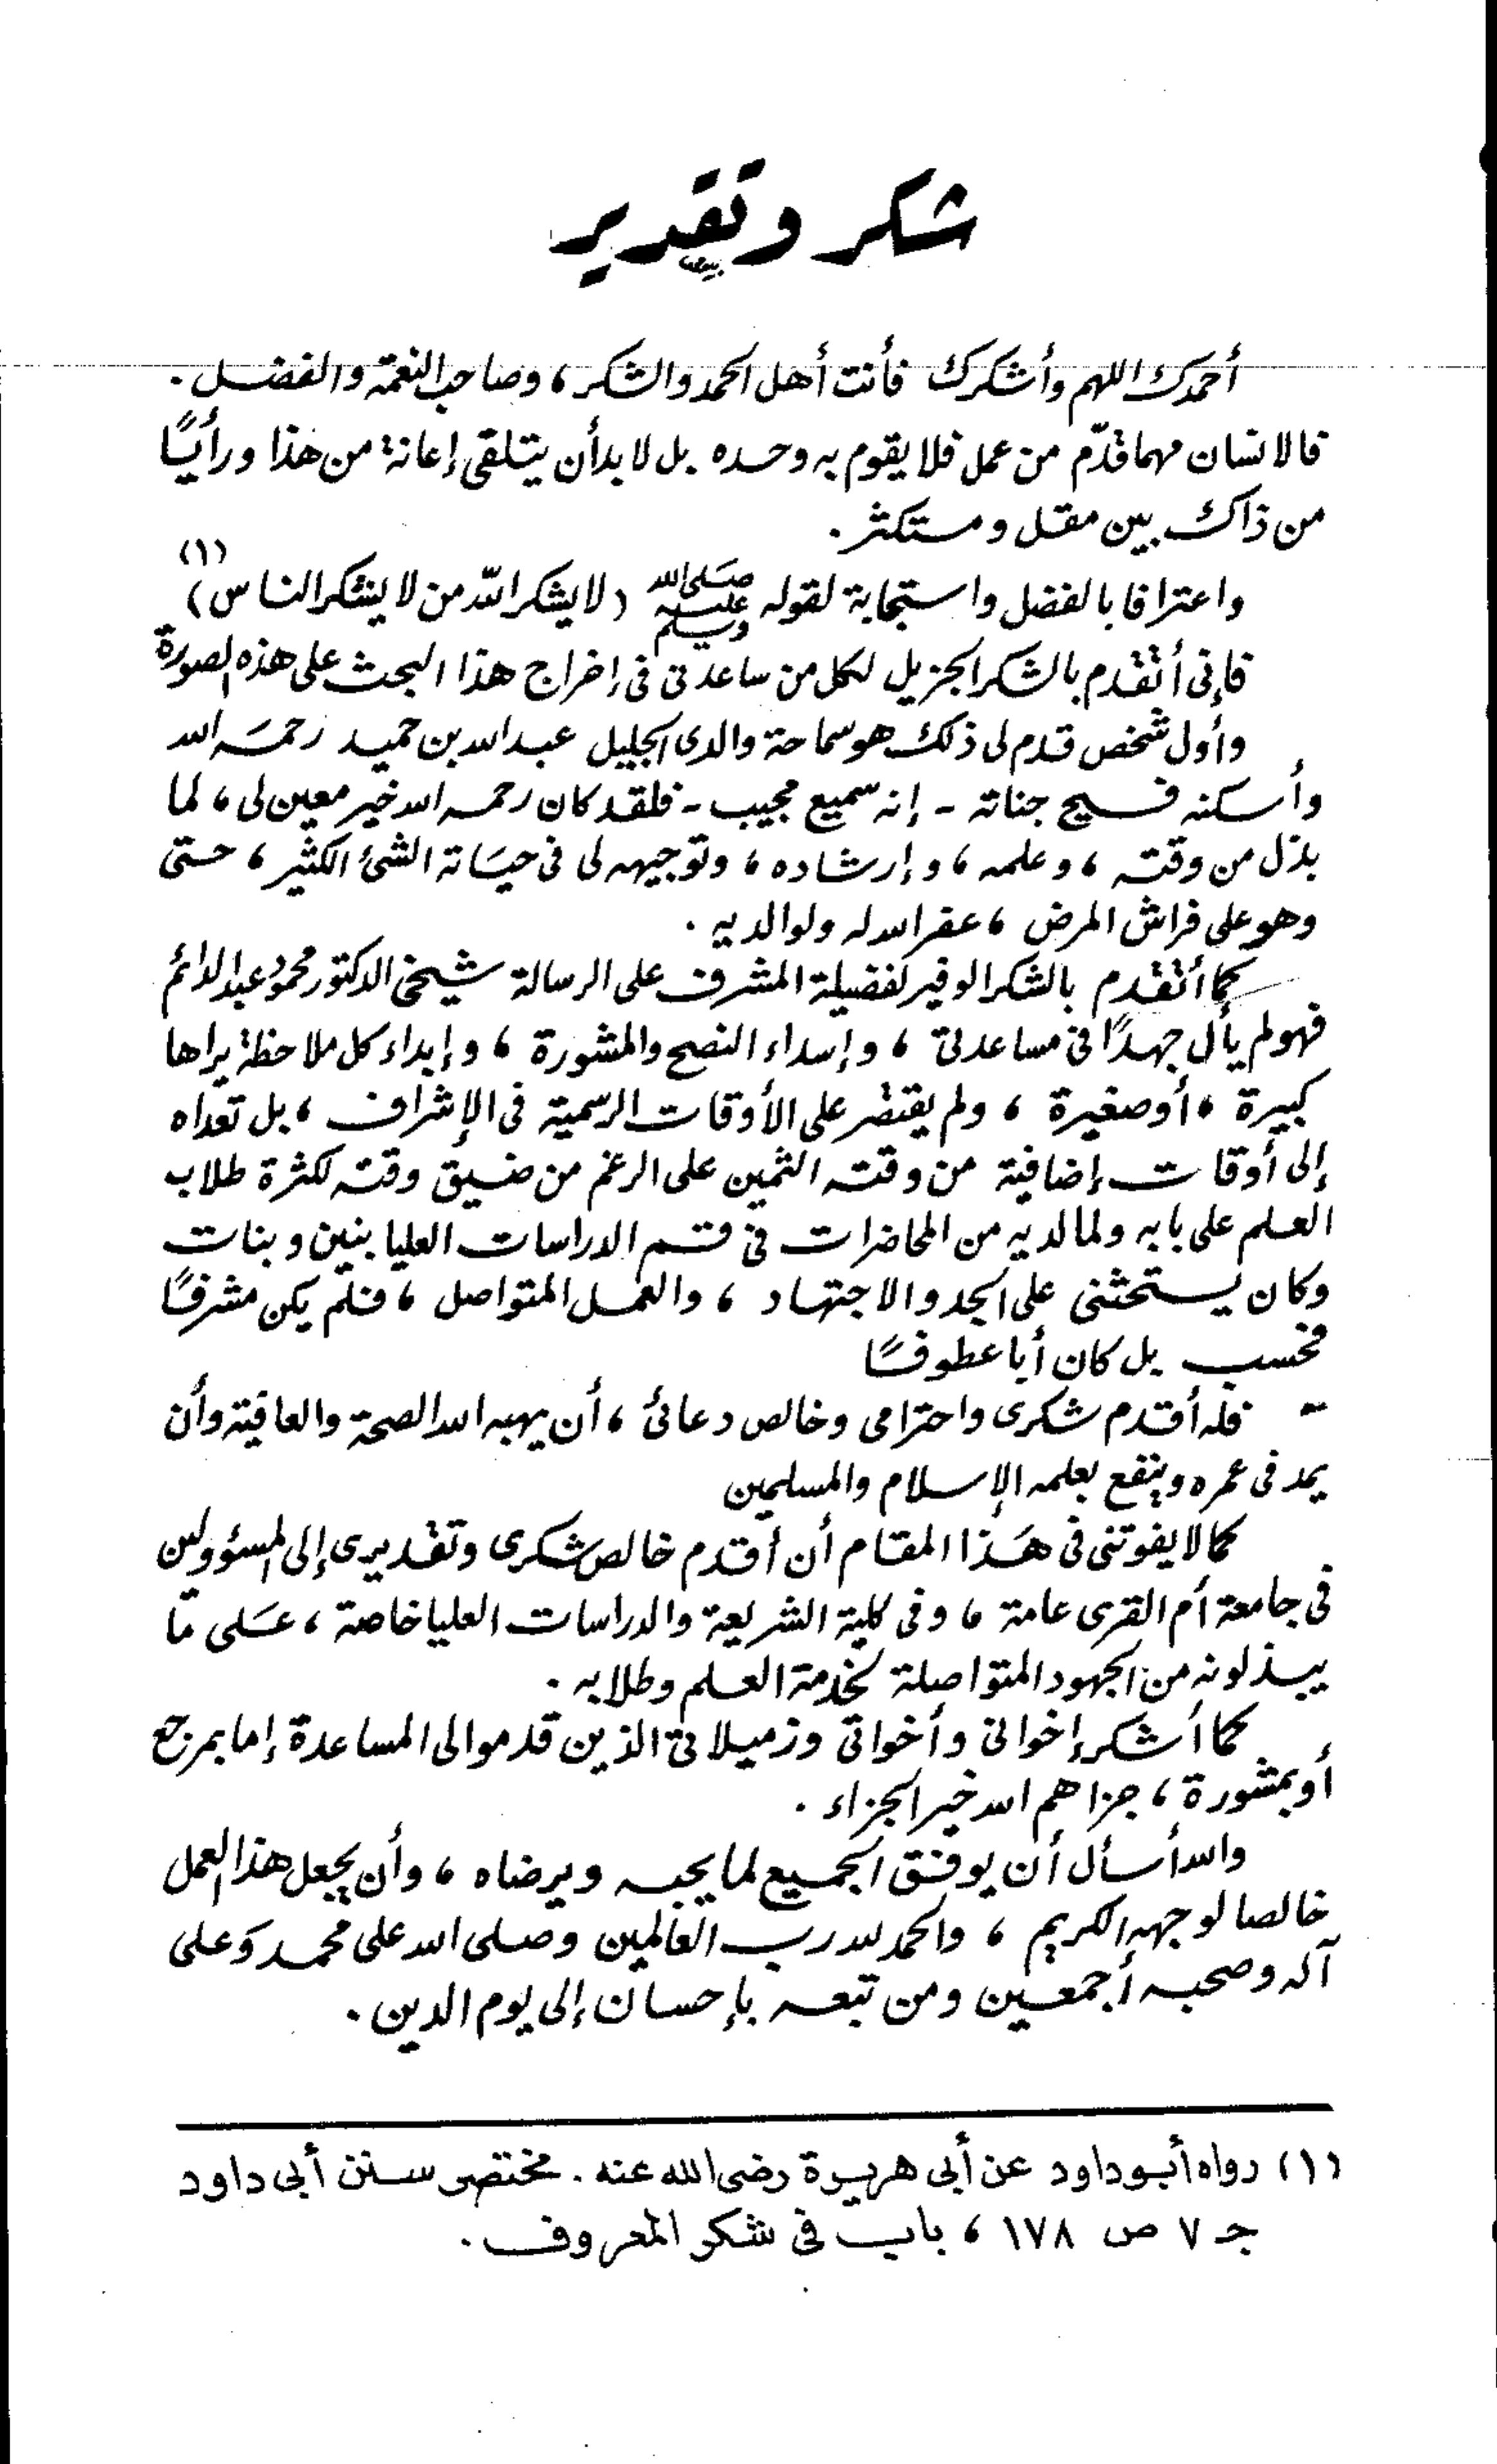 شكر وتقدير
أحمدك اللهم وأشكرك فأنت أهل الحمد والشكر ، وصاحب النعمة والفضل .
فالانسان مهما قدّم من عمل فلا يقوم به وحده بل لا بد أن يتلقى إعانة من هذا ورأيًا
من ذاك بين مقل ومستكثر .
واعترافا بالفضل واستجابة لقوله صلى الله عليه وسلم (لا يشكر الله من لا يشكر الناس) (١)
فإنى أتقدم بالشكر الجزيل لكل من ساعدنى فى إخراج هذا البحث على هذه الصورة
وأول شخص قدم لى ذلك هو سماحة والدى الجليل عبد الله بن حميد رحمه الله
وأسكنه فسيح جناته - إنه سميع مجيب - فلقد كان رحمه الله خير معين لى ، لما
بذل من وقته ، وعلمه ، وإرشاده ، وتوجيهه لى فى حياته الشئ الكثير ، حتى
وهو على فراش المرض ، غفر الله له ولوالديه .
كما أتقدم بالشكر الوفير لفضيلة المشرف على الرسالة شيخى الدكتور محمود عبد الدائم
فهو لم يأل جهدًا فى مساعدتى ، وإسداء النصح والمشورة ، وإبداء كل ملاحظة يراها
كبيرة ، أو صغيرة ، ولم يقتصر على الأوقات الرسمية فى الإشراف ، بل تعداه
إلى أوقات إضافية من وقته الثمين على الرغم من ضيق وقته لكثرة طلاب
العلم على بابه ولما لديه من المحاضرات فى قسم الدراسات العليا بنين وبنات
وكان يستحثنى على الجد والاجتهاد ، والعمل المتواصل ، فلم يكن مشرفًا
فحسب بل كان أبا عطوفًا
- فله أقدم شكرى واحترامى وخالص دعائى ، أن يهبه الله الصحة والعافية وأن
يمد فى عمره وينفع بعلمه الإسلام والمسلمين
كما لا يفوتنى فى هذا المقام أن أقدم خالص شكرى وتقديرى إلى المسؤولين
فى جامعة أم القرى عامة ، وفى كلية الشريعة والدراسات العليا خاصة ، على ما
يبذلونه من الجهود المتواصلة لخدمة العلم وطلابه .
كما أشكر إخوانى وأخواتى وزميلاتى الذين قدموا لى المساعدة إما بمرجع
أو بمشورة ، جزاهم الله خير الجزاء .
والله أسأل أن يوفق الجميع لما يحبه ويرضاه ، وأن يجعل هذا العمل
خالصا لوجهه الكريم ، والحمد لله رب العالمين وصلى الله على محمد وعلى
آله وصحبه أجمعين ومن تبعه بإحسان إلى يوم الدين .
(١) رواه أبو داود عن أبى هريرة رضى الله عنه . مختصر سنن أبى داود
جـ ٧ ص ١٧٨ ، باب فى شكر المعروف .